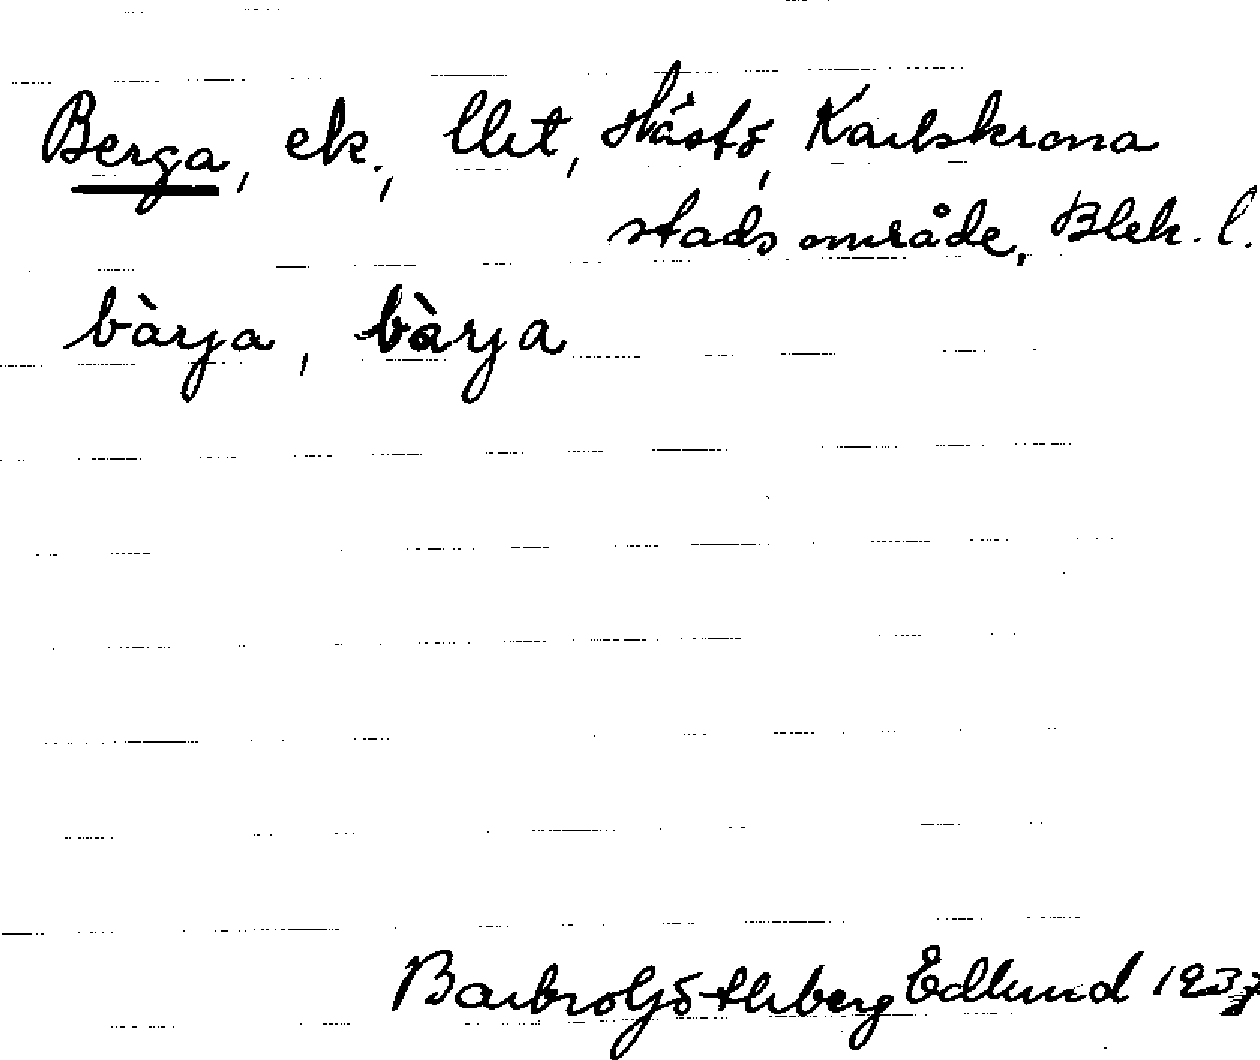 Berga, ek., Ulet, Hästö, Karlskrona
stadsområde, Blek. l.
bàrja, bàrja
Barbro Göthberg Edlund 1937